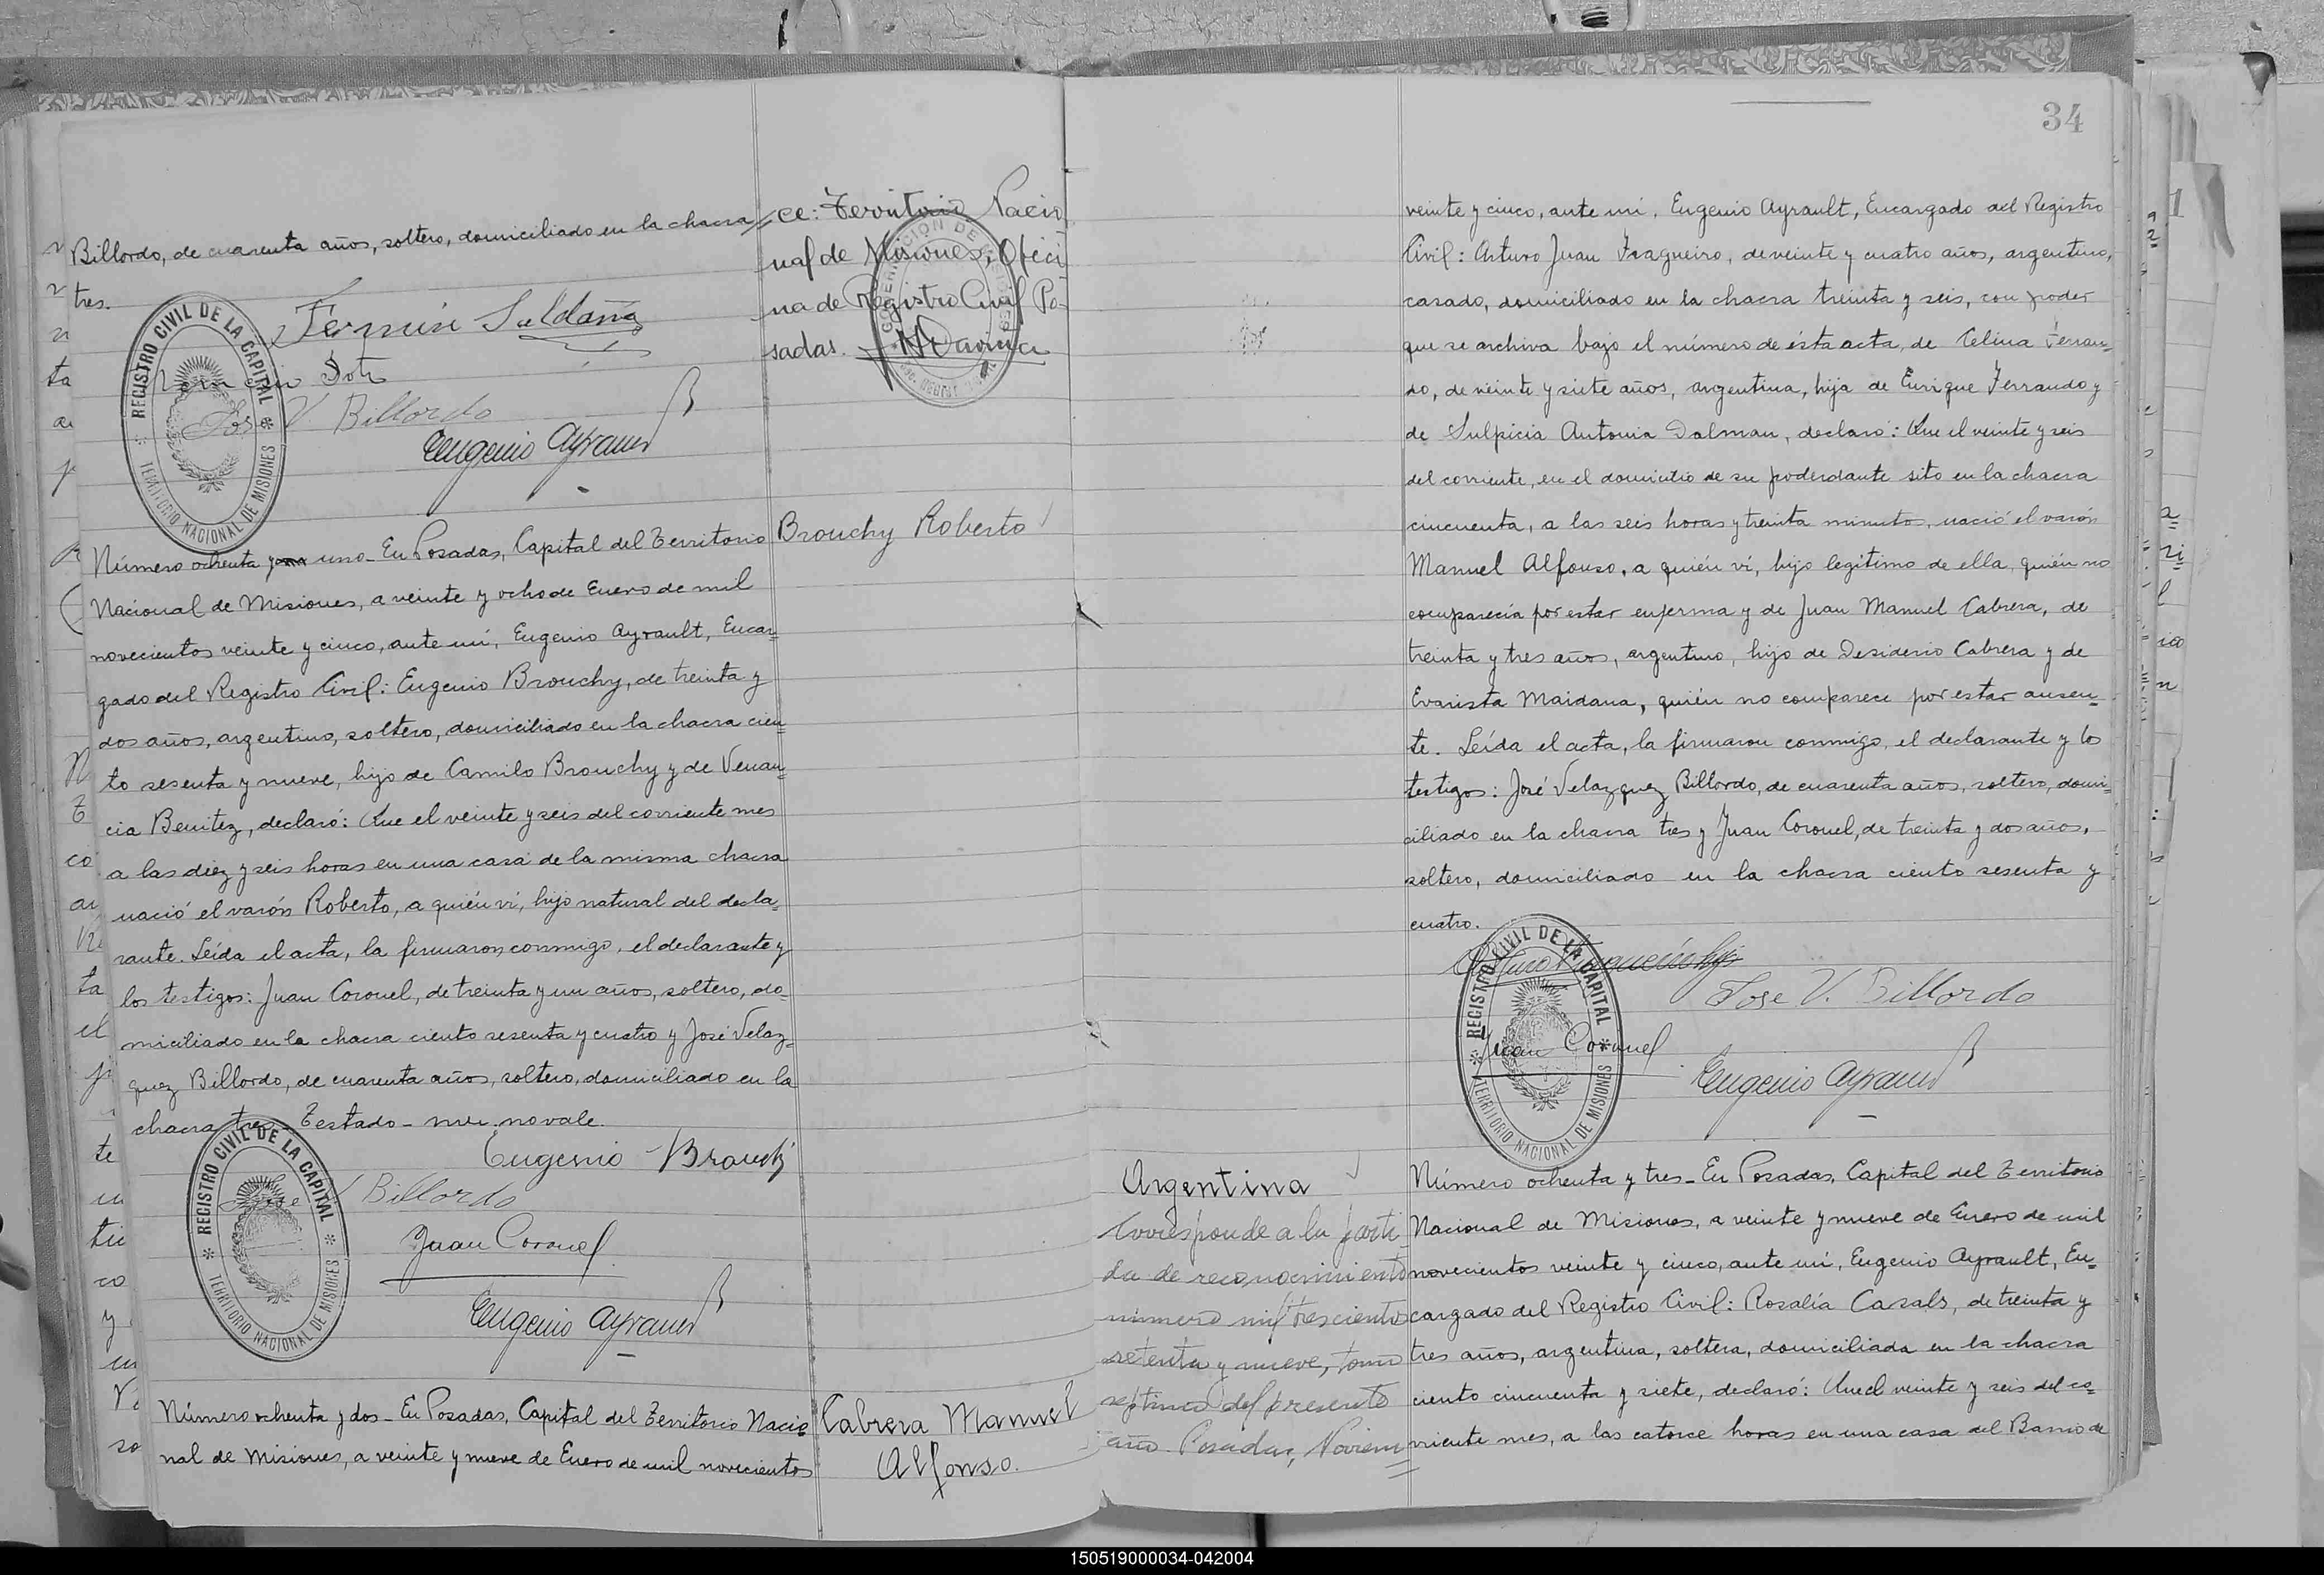 Billordo, de cuarenta años, soltero, domiciliado en la chacra
tres.
Fermin Saldaña
Soto
José V. Billordo
Eugenio Ayrault
REGISTRO CIVIL DE LA CAPITAL
TERRITORIO NACIONAL DE MISIONES
ce: Territorio Nacio
nal de Misiones, Ofici
na de Registro Civil Po-
sadas.
Número ochenta y uno- En Posadas, Capital del Territorio
Nacional de Misiones, a veinte y ocho de Enero de mil
novecientos veinte y cinco, ante mí, Eugenio Ayrault, Encar=
gado del Registro Civil: Eugenio Brouchy, de treinta y
dos años, argentino, soltero, domiciliado en la chacra cien
to sesenta y nueve, hijo de Camilo Brouchy y de Venan=
cia Benitez, declaró: Que el veinte y seis del corriente mes
a las diez y seis horas en una casa de la misma chacra
nació el varón Roberto, a quién ví, hijo natural del decla=
rante. Leída el acta, la firmaron conmigo, el declarante y
los testigos: Juan Coronel, de treinta y un años, soltero, do=
miciliado en la chacra ciento sesenta y cuatro y José Velaz=
quez Billordo, de cuarenta años, soltero, domiciliado en la
chacra tres- Testado- no vale.
Brouchy Roberto
Eugenio Brouchy
José V Billordo
Juan Coronel
Eugenio Ayrault
REGISTRO CIVIL DE LA CAPITAL
TERRITORIO NACIONAL DE MISIONES
Número ochenta y dos- En Posadas, Capital del Territorio Nacio=
nal de Misiones, a veinte y nueve de Enero de mil novecientos
Cabrera Manuel
Alfonso.
34
veinte y cinco, ante mí, Eugenio Ayrault, Encargado del Registro
Civil: Arturo Juan Fragueiro, de veinte y cuatro años, argentino,
casado, domiciliado en la chacra treinta y seis, con poder
que se archiva bajo el número de ésta acta, de Celina Ferran=
do, de veinte y siete años, argentina, hija de Enrique Ferrando y
de Sulpicia Antonia Dalman, declaró: Que el veinte y seis
del corriente, en el domicilio de su poderdante sito en la chacra
cincuenta, a las seis horas y treinta minutos, nació el varón
Manuel Alfonso, a quién ví, hijo legítimo de ella, quién no
comparecía por estar enferma y de Juan Manuel Cabrera, de
treinta y tres años, argentino, hijo de Desiderio Cabrera y de
Evarista Maidana, quién no comparece por estar ausen=
te. Leída el acta, la firmaron conmigo, el declarante y los
testigos: José Velazquez Billordo, de cuarenta años, soltero, domi=
ciliado en la chacra tres y Juan Coronel, de treinta y dos años,
soltero, domiciliado en la chacra ciento sesenta y
cuatro.
Arturo Fragueiro hijo
Jose V. Billordo
Juan Coronel
Eugenio Ayrault
REGISTRO CIVIL DE LA CAPITAL
TERRITORIO NACIONAL DE MISIONES
Argentina
Corresponde a la parti
da de reconocimiento
número mil trescientos
setenta y nueve, tomo
septimo del presente
año. Posadas, Noviem=
Número ochenta y tres- En Posadas, Capital del Territorio
Nacional de Misiones, a veinte y nueve de Enero de mil
novecientos veinte y cinco, ante mí, Eugenio Ayrault, En=
cargado del Registro Civil: Rosalía Casals, de treinta y
tres años, argentina, soltera, domiciliada en la chacra
ciento cincuenta y siete, declaró: Que el veinte y seis del co=
rriente mes, a las catorce horas en una casa del Barrio de
150519000034-042004